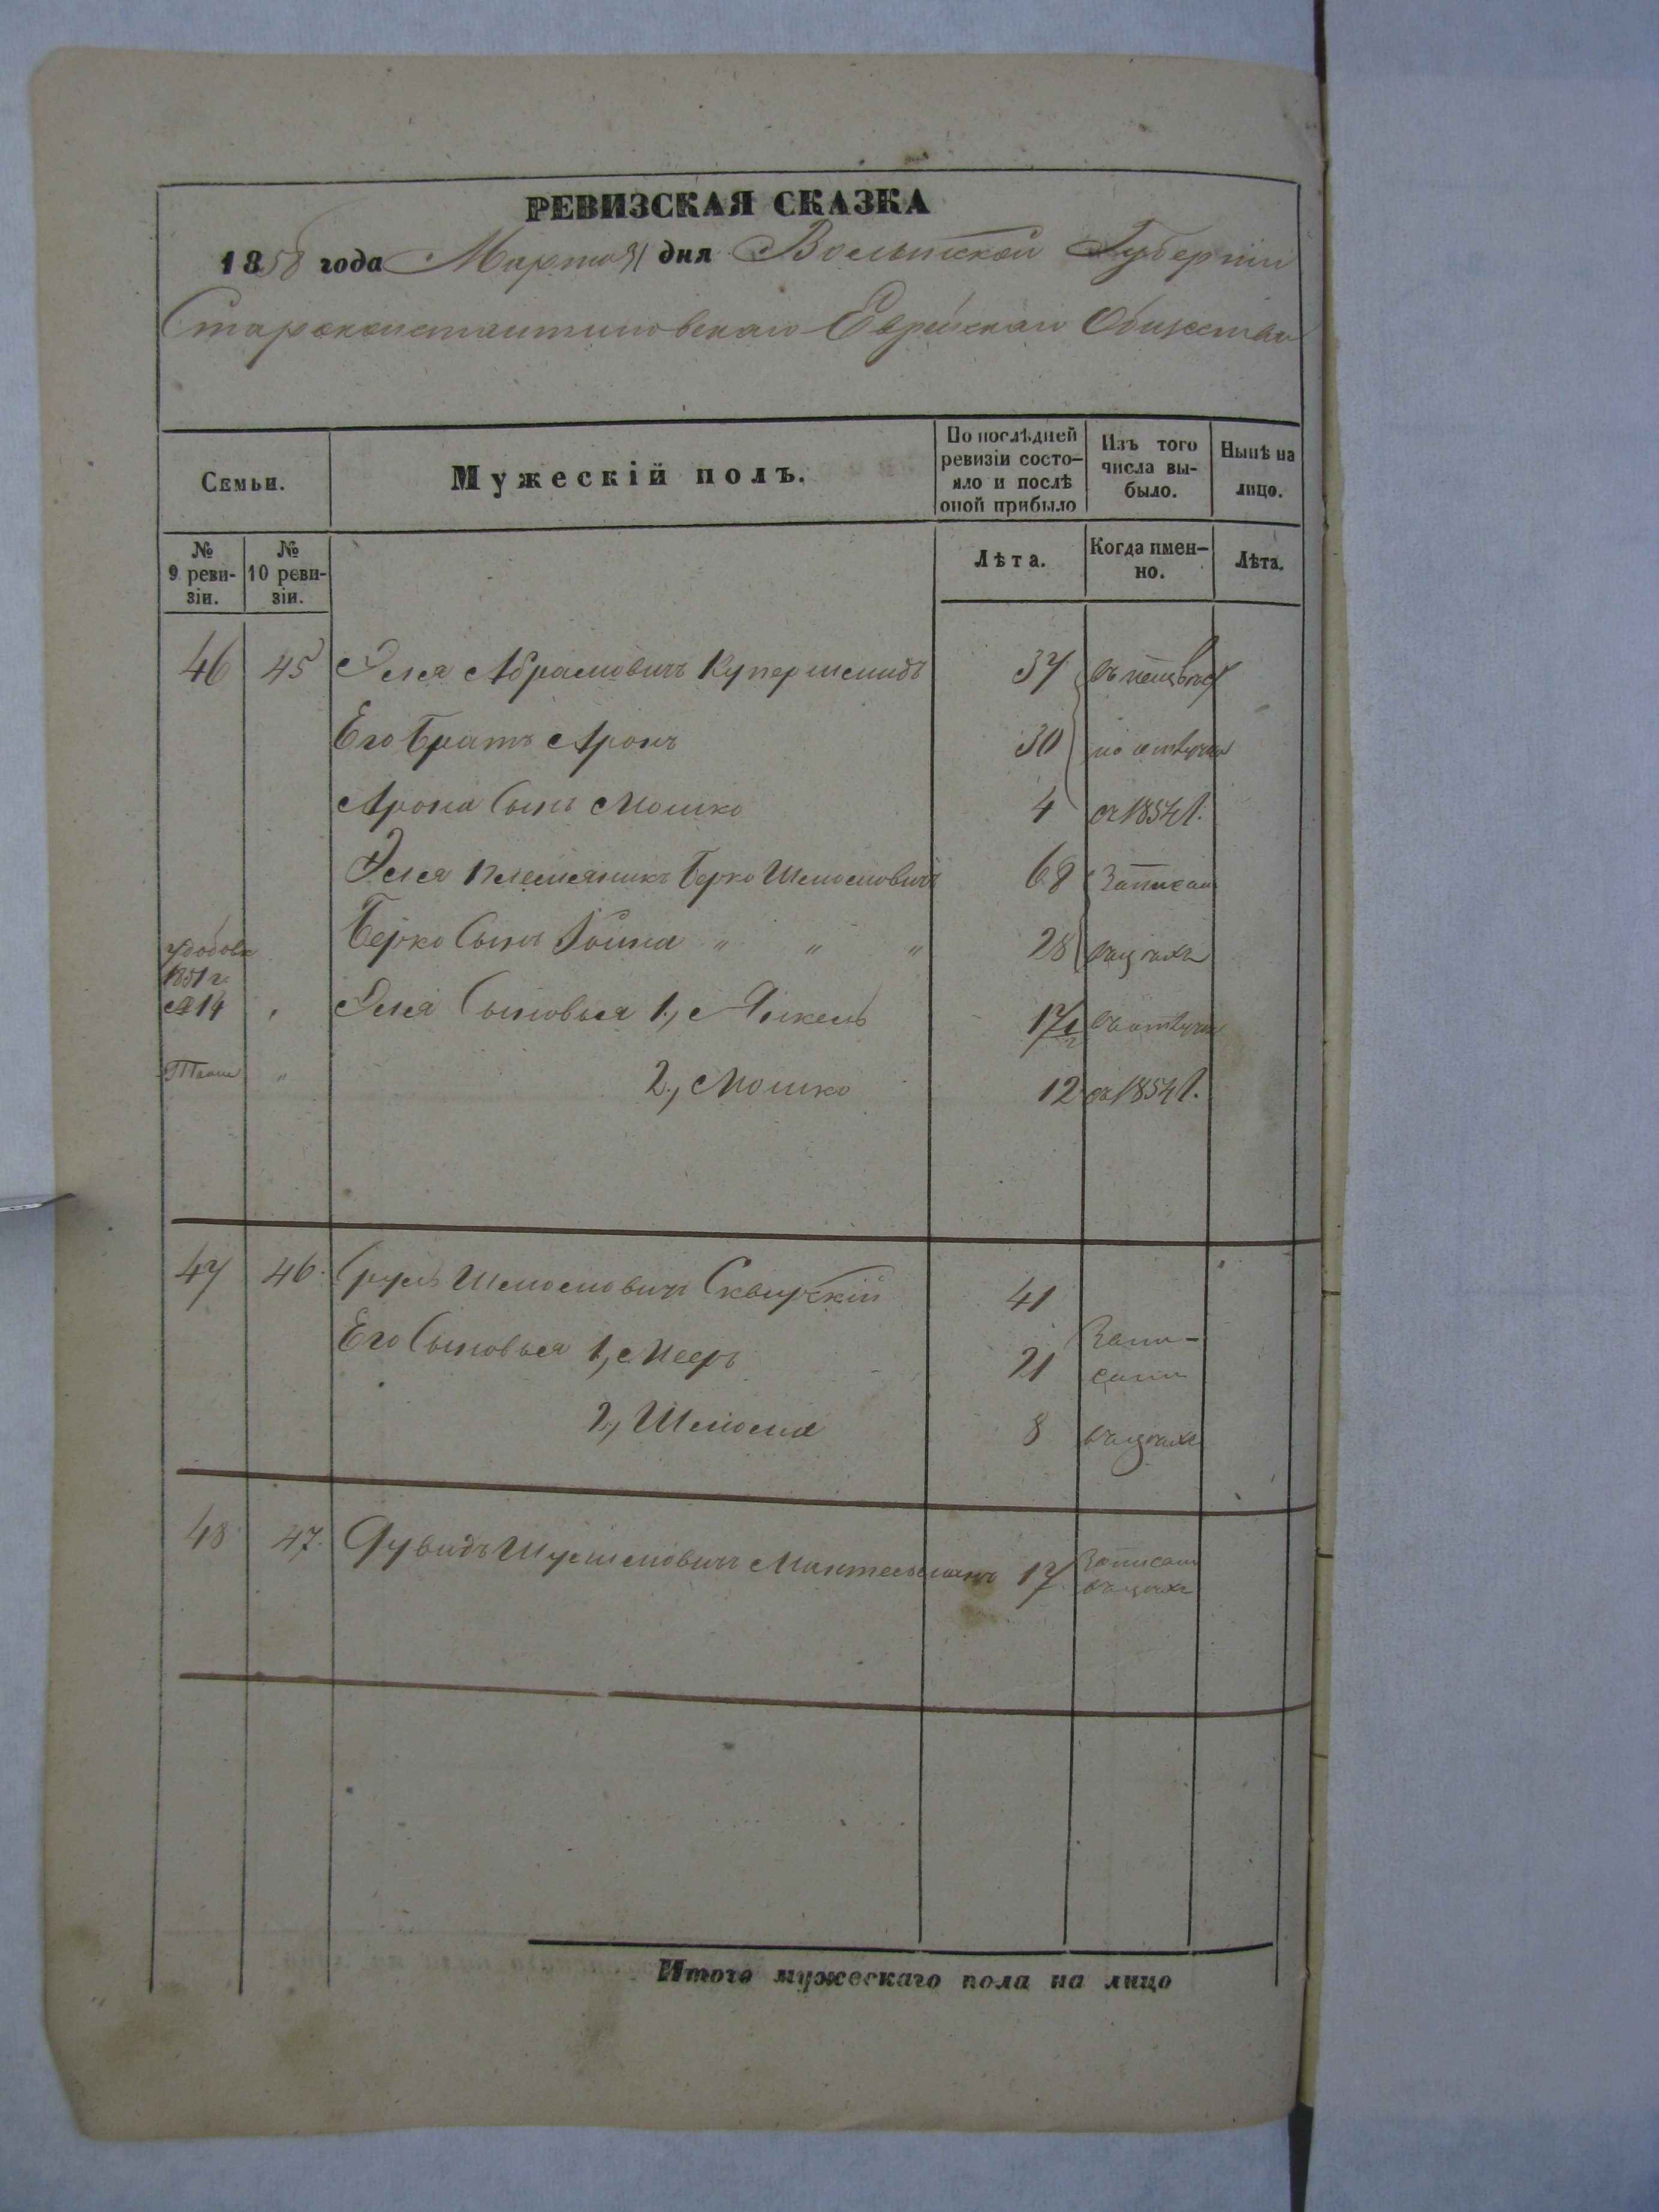 РЕВИЗСКАЯ СКАЗКА
1858 года Марта 31 дня Волынской Губерніи
Староконстантиновскаго Еврейскаго Общества
Семьи.
Мужескій полъ.
По послѣдней ревизіи состо-
яло и послѣ
оной прибыло
Изъ того
числа вы-
было.
Нынѣ на
лицо.
№
9 реви-
зіи.
№
10 реви-
зіи.
Лѣта.
Когда имен-
но.
Лѣта.
46 45 Эля Абрамовичъ Купершмидъ 37
Его братъ Аронъ 30
Арона сынъ Мошко 4 съ 1854 г.
Эля племяникъ Берко Шмойловичъ 68 Записан
Берко сынъ " " " 28 въ цехъ
1851 г.
№ 14 " Эля сыновья 1, Янкель 17
" 2, Мошко 12 съ 1854 г.
47 46. Сруль Шмойловичъ Сквирскій 41
Его сыновья 1, Мееръ 21 Запи-
саны
2, Шмойла 8 въ цехъ
48 47. Дувидъ Мантельмахъ 17 Записанъ
въ цехъ
Итого мужескаго пола на лицо